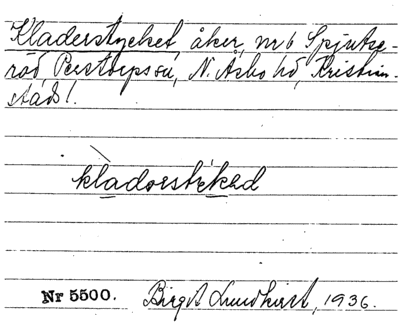 Kladerstycket, åker, nr 6 Spjutse-
röd, Perstorps sn, N. Åsbo hd, Kristian-
stads l.
kladorstẏkəd
Nr 5500. Birgit Lundkvist, 1936.